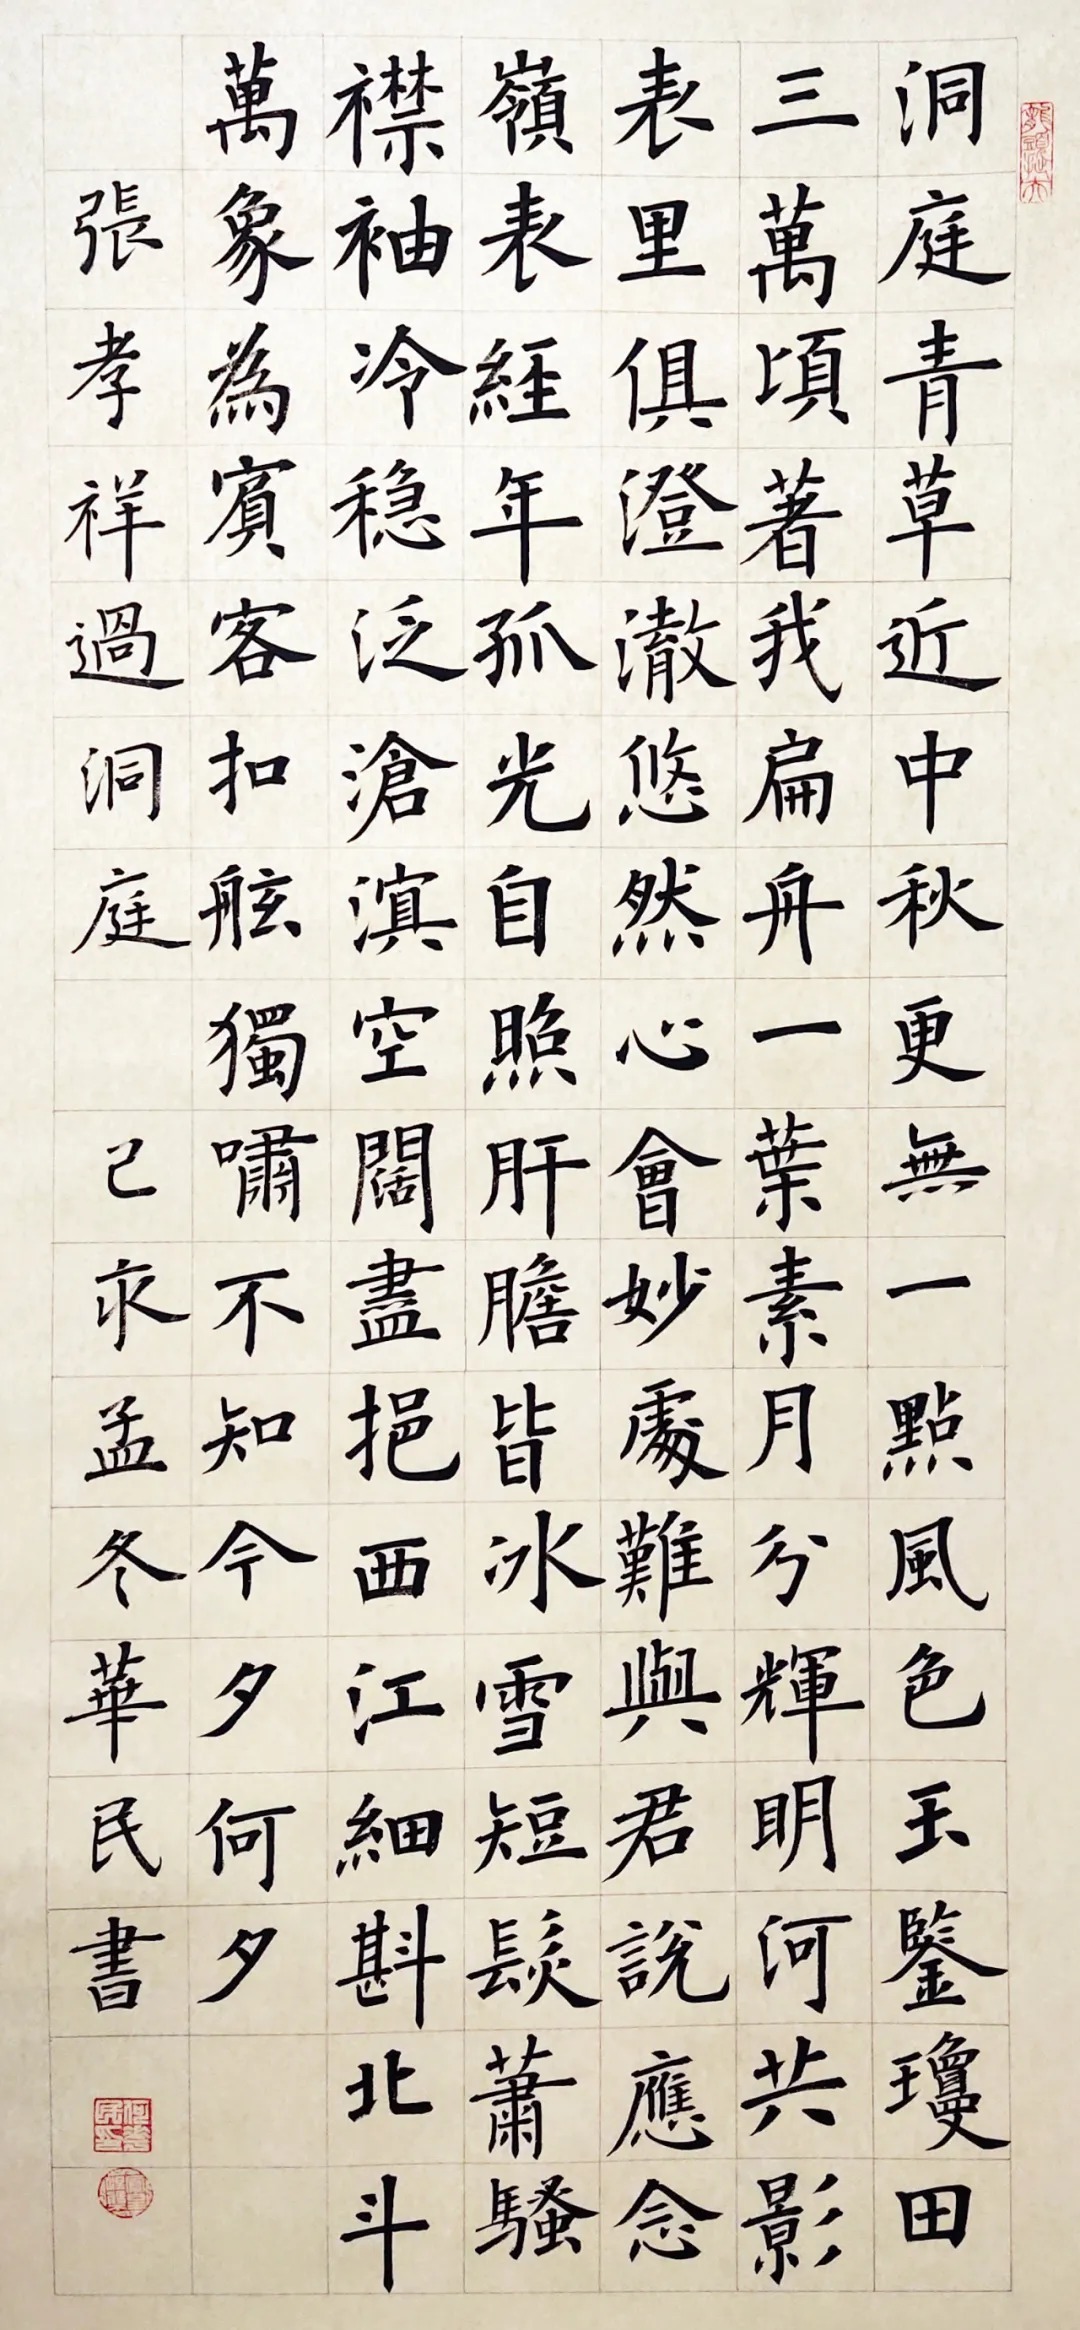 洞庭青草近中秋更無一點風色玉鑒瓊田
三萬頃著我扁舟一葉素月分輝明河共影
表里俱澄澈悠然心會妙處難與君說應念
嶺表經年孤光自照肝膽皆冰雪短髮蕭騷
襟袖冷穩泛滄溟空闊盡挹西江細斟北斗
萬象為賓客扣舷獨嘯不知今夕何夕
張孝祥過洞庭 己亥孟冬華民書